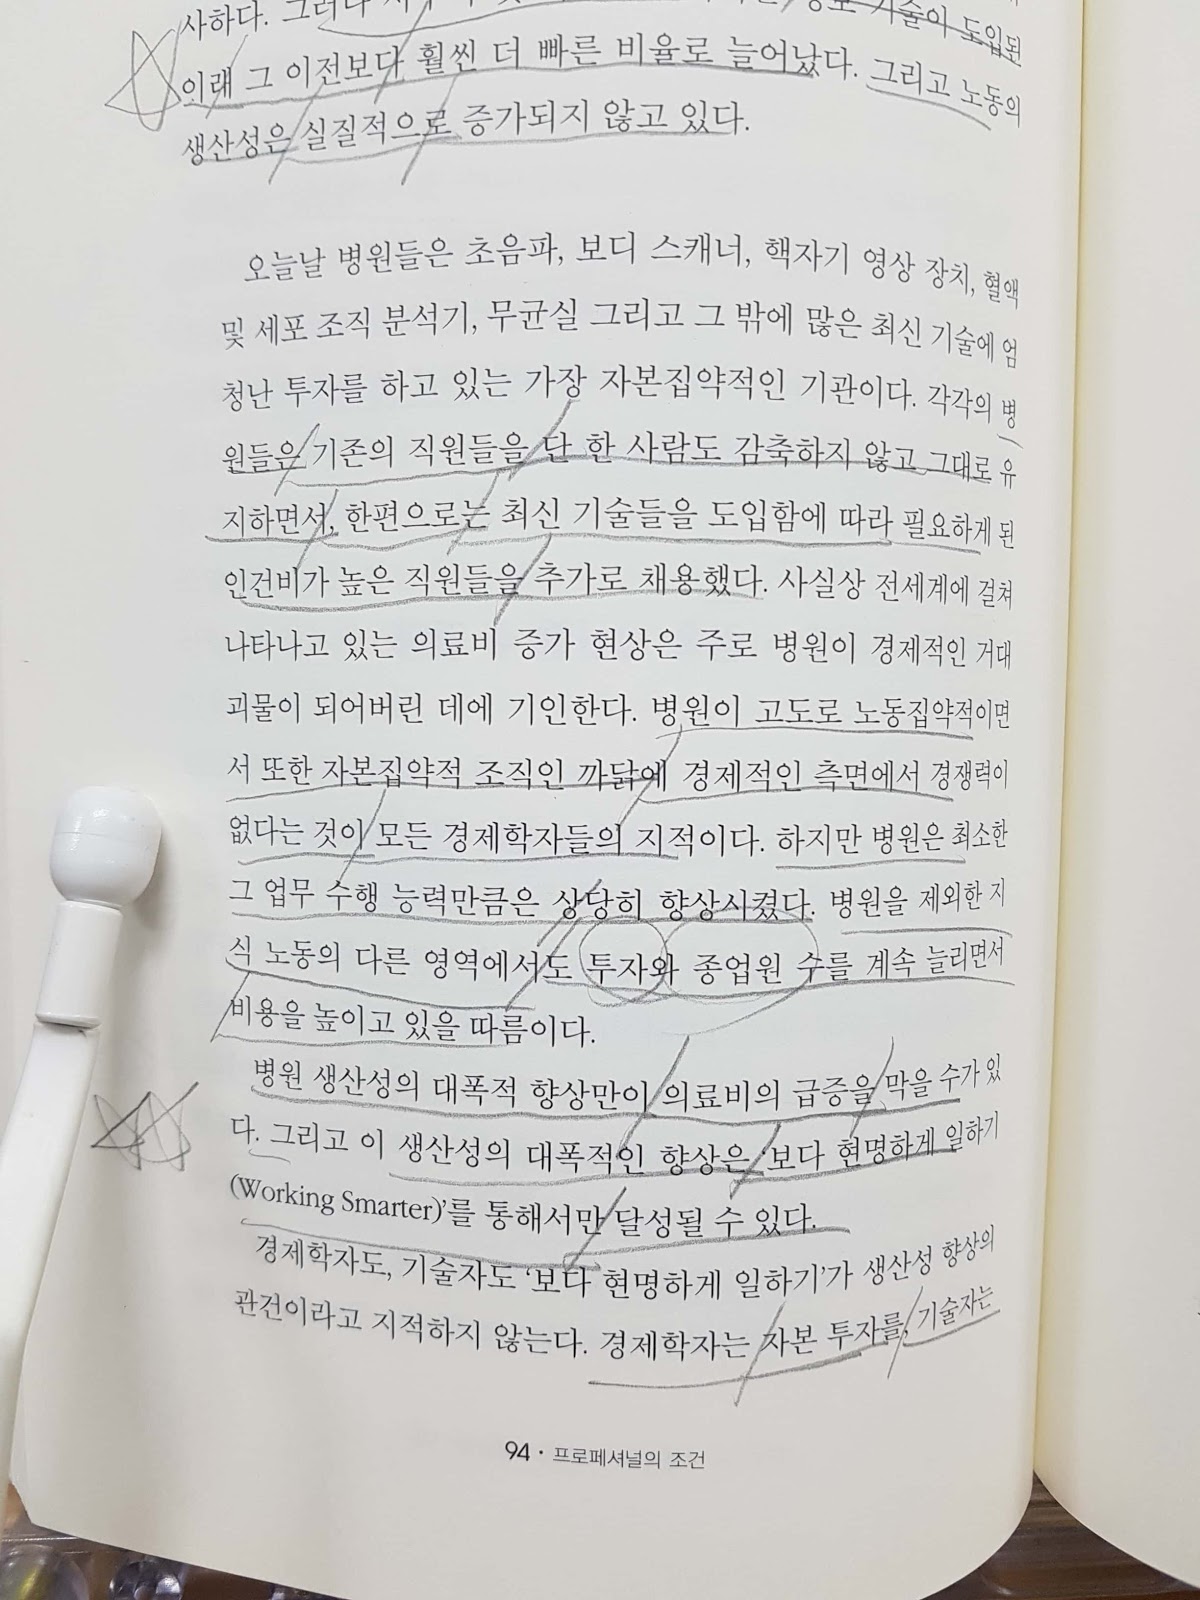 사하다. 그러나 기술이 도입된
이래 그 이전보다 훨씬 더 빠른 비율로 늘어났다. 그리고 노동의
생산성은 실질적으로 증가되지 않고 있다.
오늘날 병원들은 초음파, 보디 스캐너, 핵자기 영상 장치, 혈액
및 세포 조직 분석기, 무균실 그리고 그 밖에 많은 최신 기술에 엄
청난 투자를 하고 있는 가장 자본집약적인 기관이다. 각각의 병
원들은 기존의 직원들을 단 한 사람도 감축하지 않고 그대로 유
지하면서, 한편으로는 최신 기술들을 도입함에 따라 필요하게 된
인건비가 높은 직원들을 추가로 채용했다. 사실상 전세계에 걸쳐
나타나고 있는 의료비 증가 현상은 주로 병원이 경제적인 거대
괴물이 되어버린 데에 기인한다. 병원이 고도로 노동집약적이면
서 또한 자본집약적 조직인 까닭에 경제적인 측면에서 경쟁력이
없다는 것이 모든 경제학자들의 지적이다. 하지만 병원은 최소한
그 업무 수행 능력만큼은 상당히 향상시켰다. 병원을 제외한 지
식 노동의 다른 영역에서도 투자와 종업원 수를 계속 늘리면서
비용을 높이고 있을 따름이다.
병원 생산성의 대폭적 향상만이 의료비의 급증을 막을 수가 있
다. 그리고 이 생산성의 대폭적인 향상은 ‘보다 현명하게 일하기
(Working Smarter)’를 통해서만 달성될 수 있다.
경제학자도, 기술자도 ‘보다 현명하게 일하기’가 생산성 향상의
관건이라고 지적하지 않는다. 경제학자는 자본 투자를, 기술자는
94 · 프로페셔널의 조건